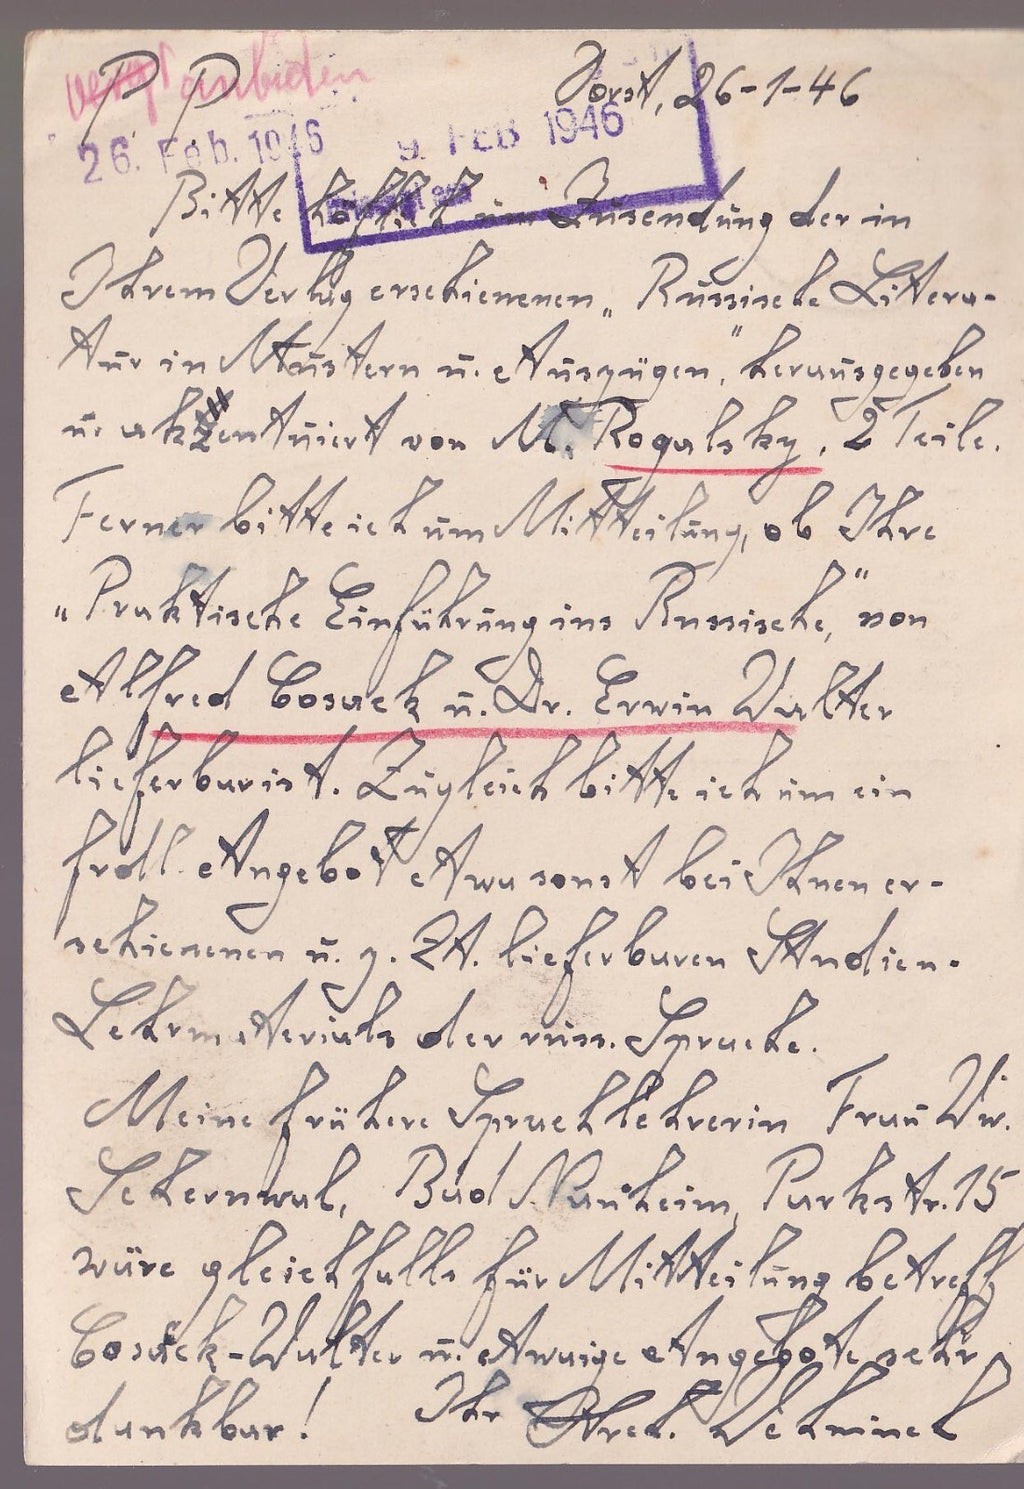 P P
anbieten
Horst, 26-1-46
26. Feb. 1946
9. FEB 1946
Bitte höflich um Zusendung der in
Ihrem Verlag erschienenen „Russische Litera-
tur in Mustern u. Auszügen," herausgegeben
u. akzentuiert von M. Rogalsky, 2 Teile.
Ferner bitte ich um Mitteilung, ob Ihre
„Praktische Einführung ins Russische," von
Alfred Cosack u. Dr. Erwin Walter
lieferbar ist. Zugleich bitte ich um ein
frdl. Angebot etwa sonst bei Ihnen er-
schienenen u. z. Zt. lieferbaren Studien-
Lehrmaterials der russ. Sprache.
Meine frühere Sprachlehrerin Frau Dir.
Schernwal, Bad Nauheim, Parkstr. 15
wäre gleichfalls für Mitteilung betreff
Cosack-Walter u. etwaige Angebote sehr
dankbar! Ihr